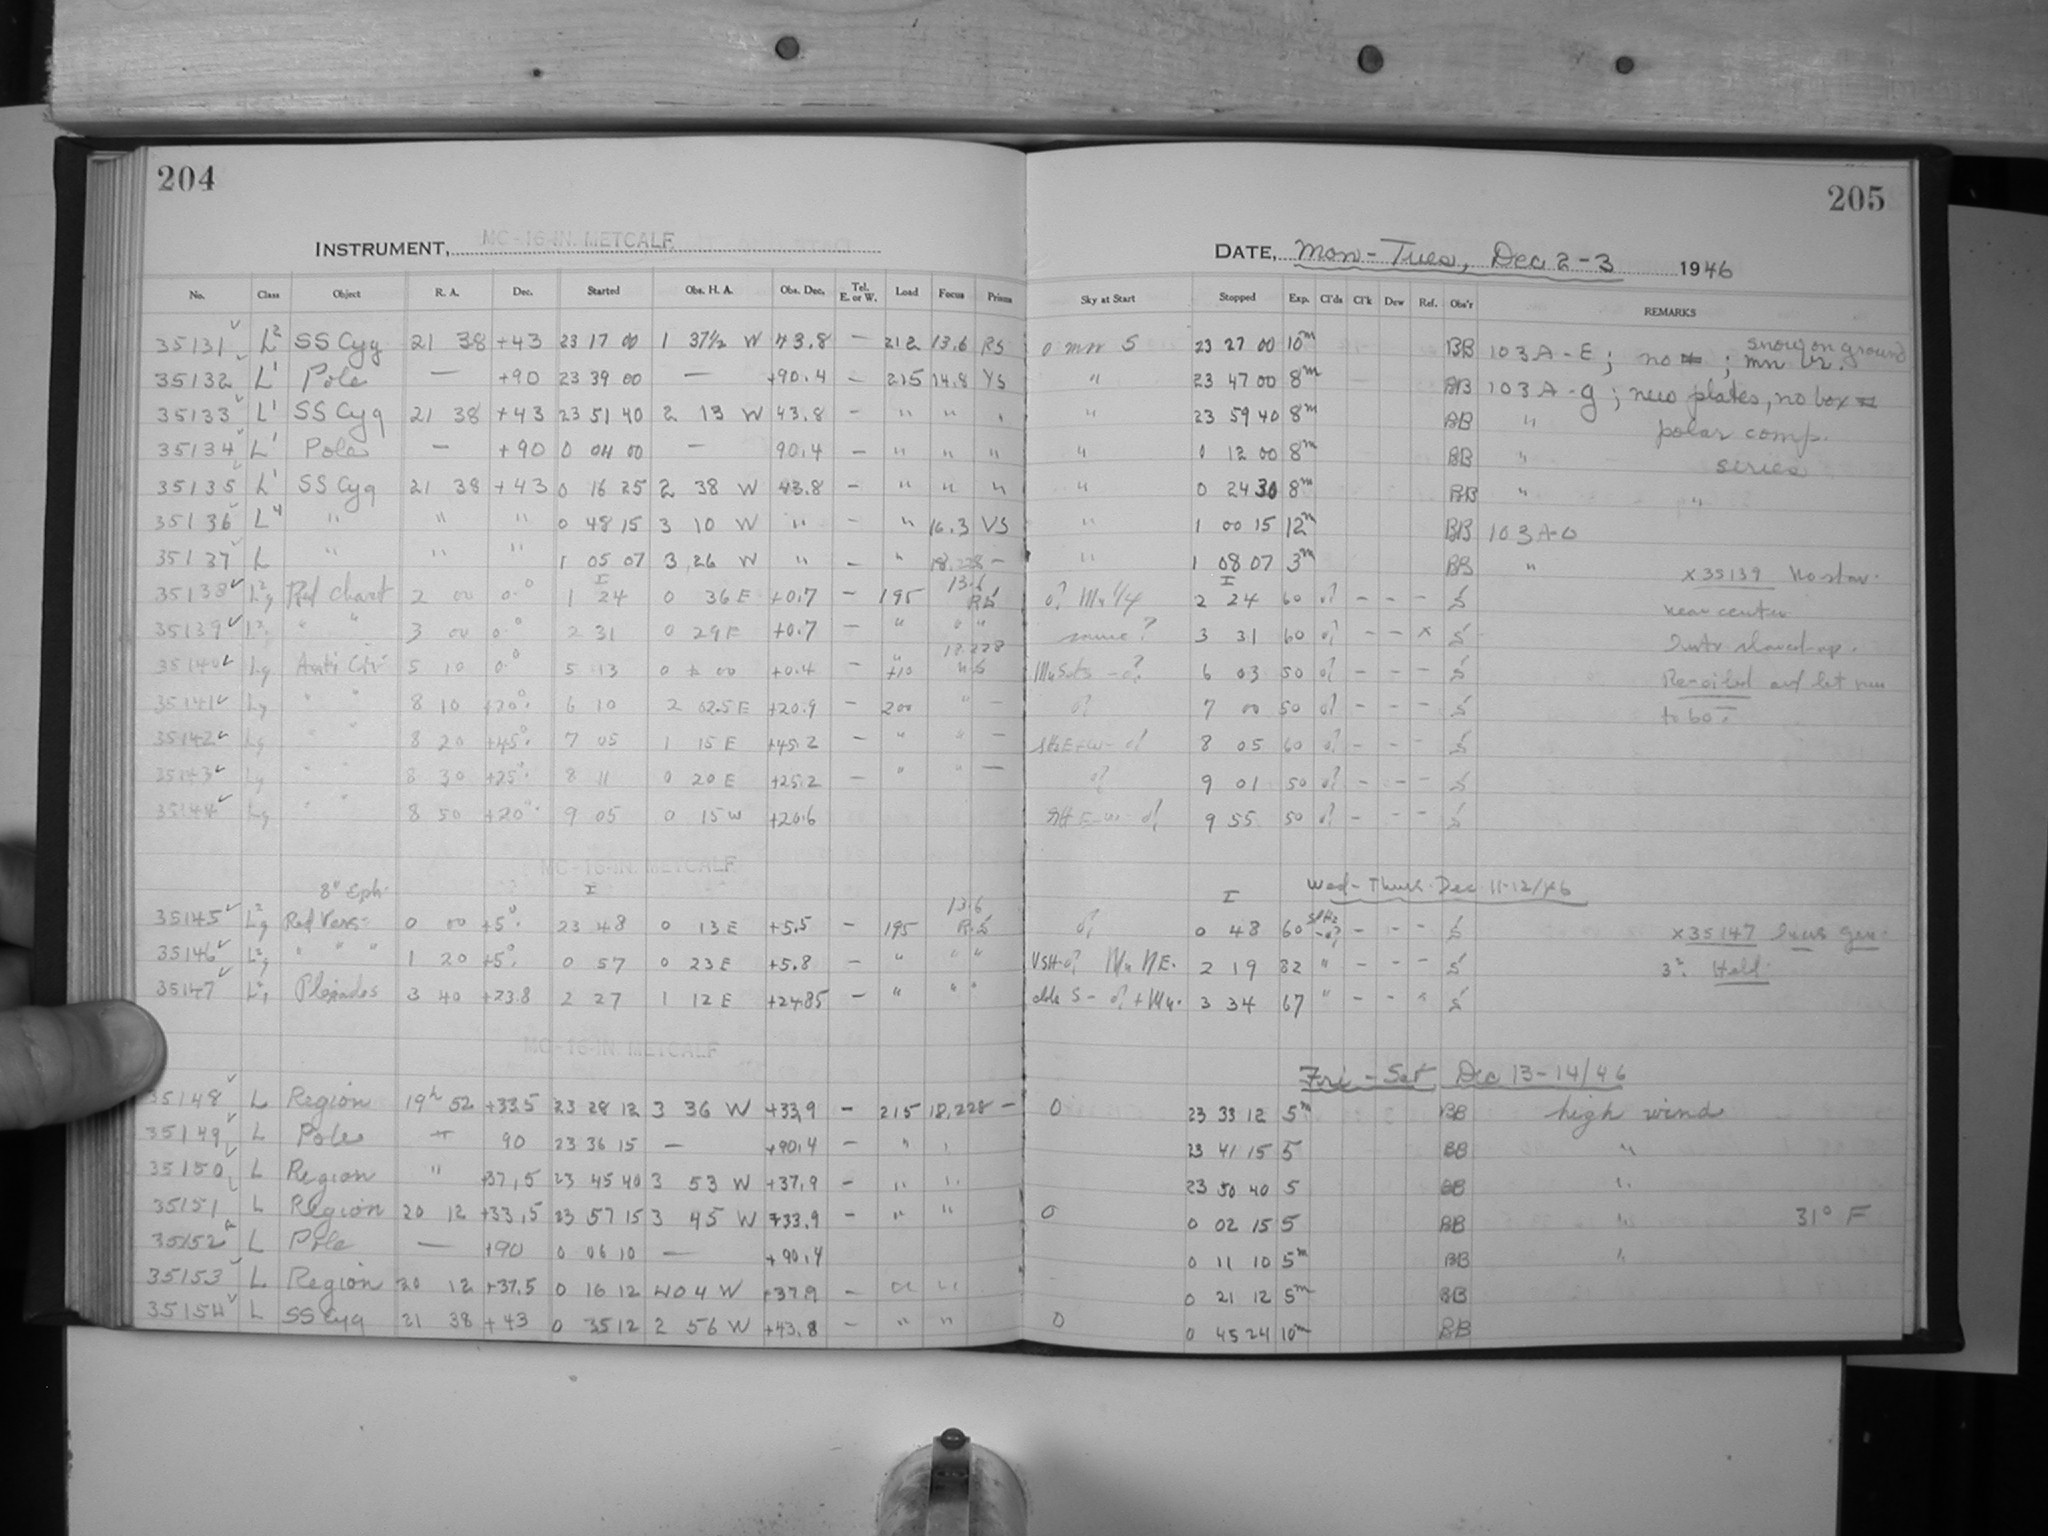 204
205
INSTRUMENT, MC-16-IN. METCALF
DATE, Mon-Tues, Dec 2-3 1946
No. Class Object R. A. Dec. Started Obs. H. A. Obs. Dec. Tel. E. or W. Load Focus Prism Sky at Start Stopped Exp. Cl'ds Cl'k Dew Ref. Obs'r REMARKS
35131 L2 SS Cyg 21 38 +43 23 17 00 1 37½ W 43.8 — 212 13.6 RS 0 mn S 23 27 00 10m BB 103A-E; no ; mn Vr. snow on ground
35132 L1 Pole — +90 23 39 00 — +90.4 — 215 14.8 YS " 23 47 00 8m BB 103A-g; new plates, no box
35133 L1 SS Cyg 21 38 +43 23 51 40 2 13 W 43.8 — " " " " 23 59 40 8m BB " polar comp.
35134 L1 Pole — +90 0 04 00 — 90.4 — " " " " 0 12 00 8m BB " series
35135 L1 SS Cyg 21 38 +43 0 16 25 2 38 W 43.8 — " " " " 0 24 30 8m BB " "
35136 L4 " " " 0 48 15 3 10 W " — " 16.3 VS " 1 00 15 12m BB 103A-O
35137 L " " " 1 05 07 3 26 W " — " 18.228 — " 1 08 07 3m BB " x 35139 No star
35138 L2g Red Chart 2 00 0° 1 24 0 36 E +0.7 — 195 13.6 RS Mn 1/4 2 24 60 — — — S near center
35139 " " 3 00 0° 2 31 0 29 E +0.7 — " " " 3 31 60 — — x S Instr slowed up.
35140 Lg 5 10 0° 5 13 +0.4 — 18.228 6 03 50 — — — S Re-oiled and let run
35141 Lg " " 8 10 +20° 6 10 2 02.5 E +20.9 — 200 " — 7 00 50 — — — S to 60m
35142 Lg " " 8 20 +45° 7 05 1 15 E +45.2 — " " — 8 05 60 — — — S
35143 Lg " " 8 30 +25° 8 11 0 20 E +25.2 — " " — 9 01 50 — — — S
35144 Lg " " 8 50 +20° 9 05 0 15 W +20.6 9 55 50 — — — S
MC-16-IN. METCALF
Wed-Thurs Dec 11-12/46
8" Eph.
35145 L2g Red Vars 0 00 +5° 23 48 0 13 E +5.5 — 195 13.6 RS 0 48 60 — — — S x 35147
35146 L2g " " " 1 20 +5° 0 57 0 23 E +5.8 — " " " Mn NE. 2 19 82 " — — — S
35147 Pleiades 3 40 +23.8 2 27 1 12 E +24.85 — " " " 3 34 67 " — — S
MC-16-IN. METCALF
Fri-Sat Dec 13-14/46
35148 L Region 19h 52 +33.5 23 28 12 3 36 W +33.9 — 215 18.228 — 0 23 33 12 5m BB high wind
35149 L Pole — 90 23 36 15 — +90.4 — " " 23 41 15 5 BB "
35150 L Region " +37.5 23 45 40 3 53 W +37.9 — " " 23 50 40 5 BB "
35151 L Region 20 12 +33.5 23 57 15 3 45 W +33.9 — " " 0 0 02 15 5 BB " 31° F
35152 L Pole — +90 0 06 10 — +90.4 0 11 10 5m BB "
35153 L Region 20 12 +37.5 0 16 12 4 04 W +37.9 — " " 0 21 12 5m BB
35154 L SS Cyg 21 38 +43 0 35 12 2 56 W +43.8 — " " 0 0 45 24 10m BB